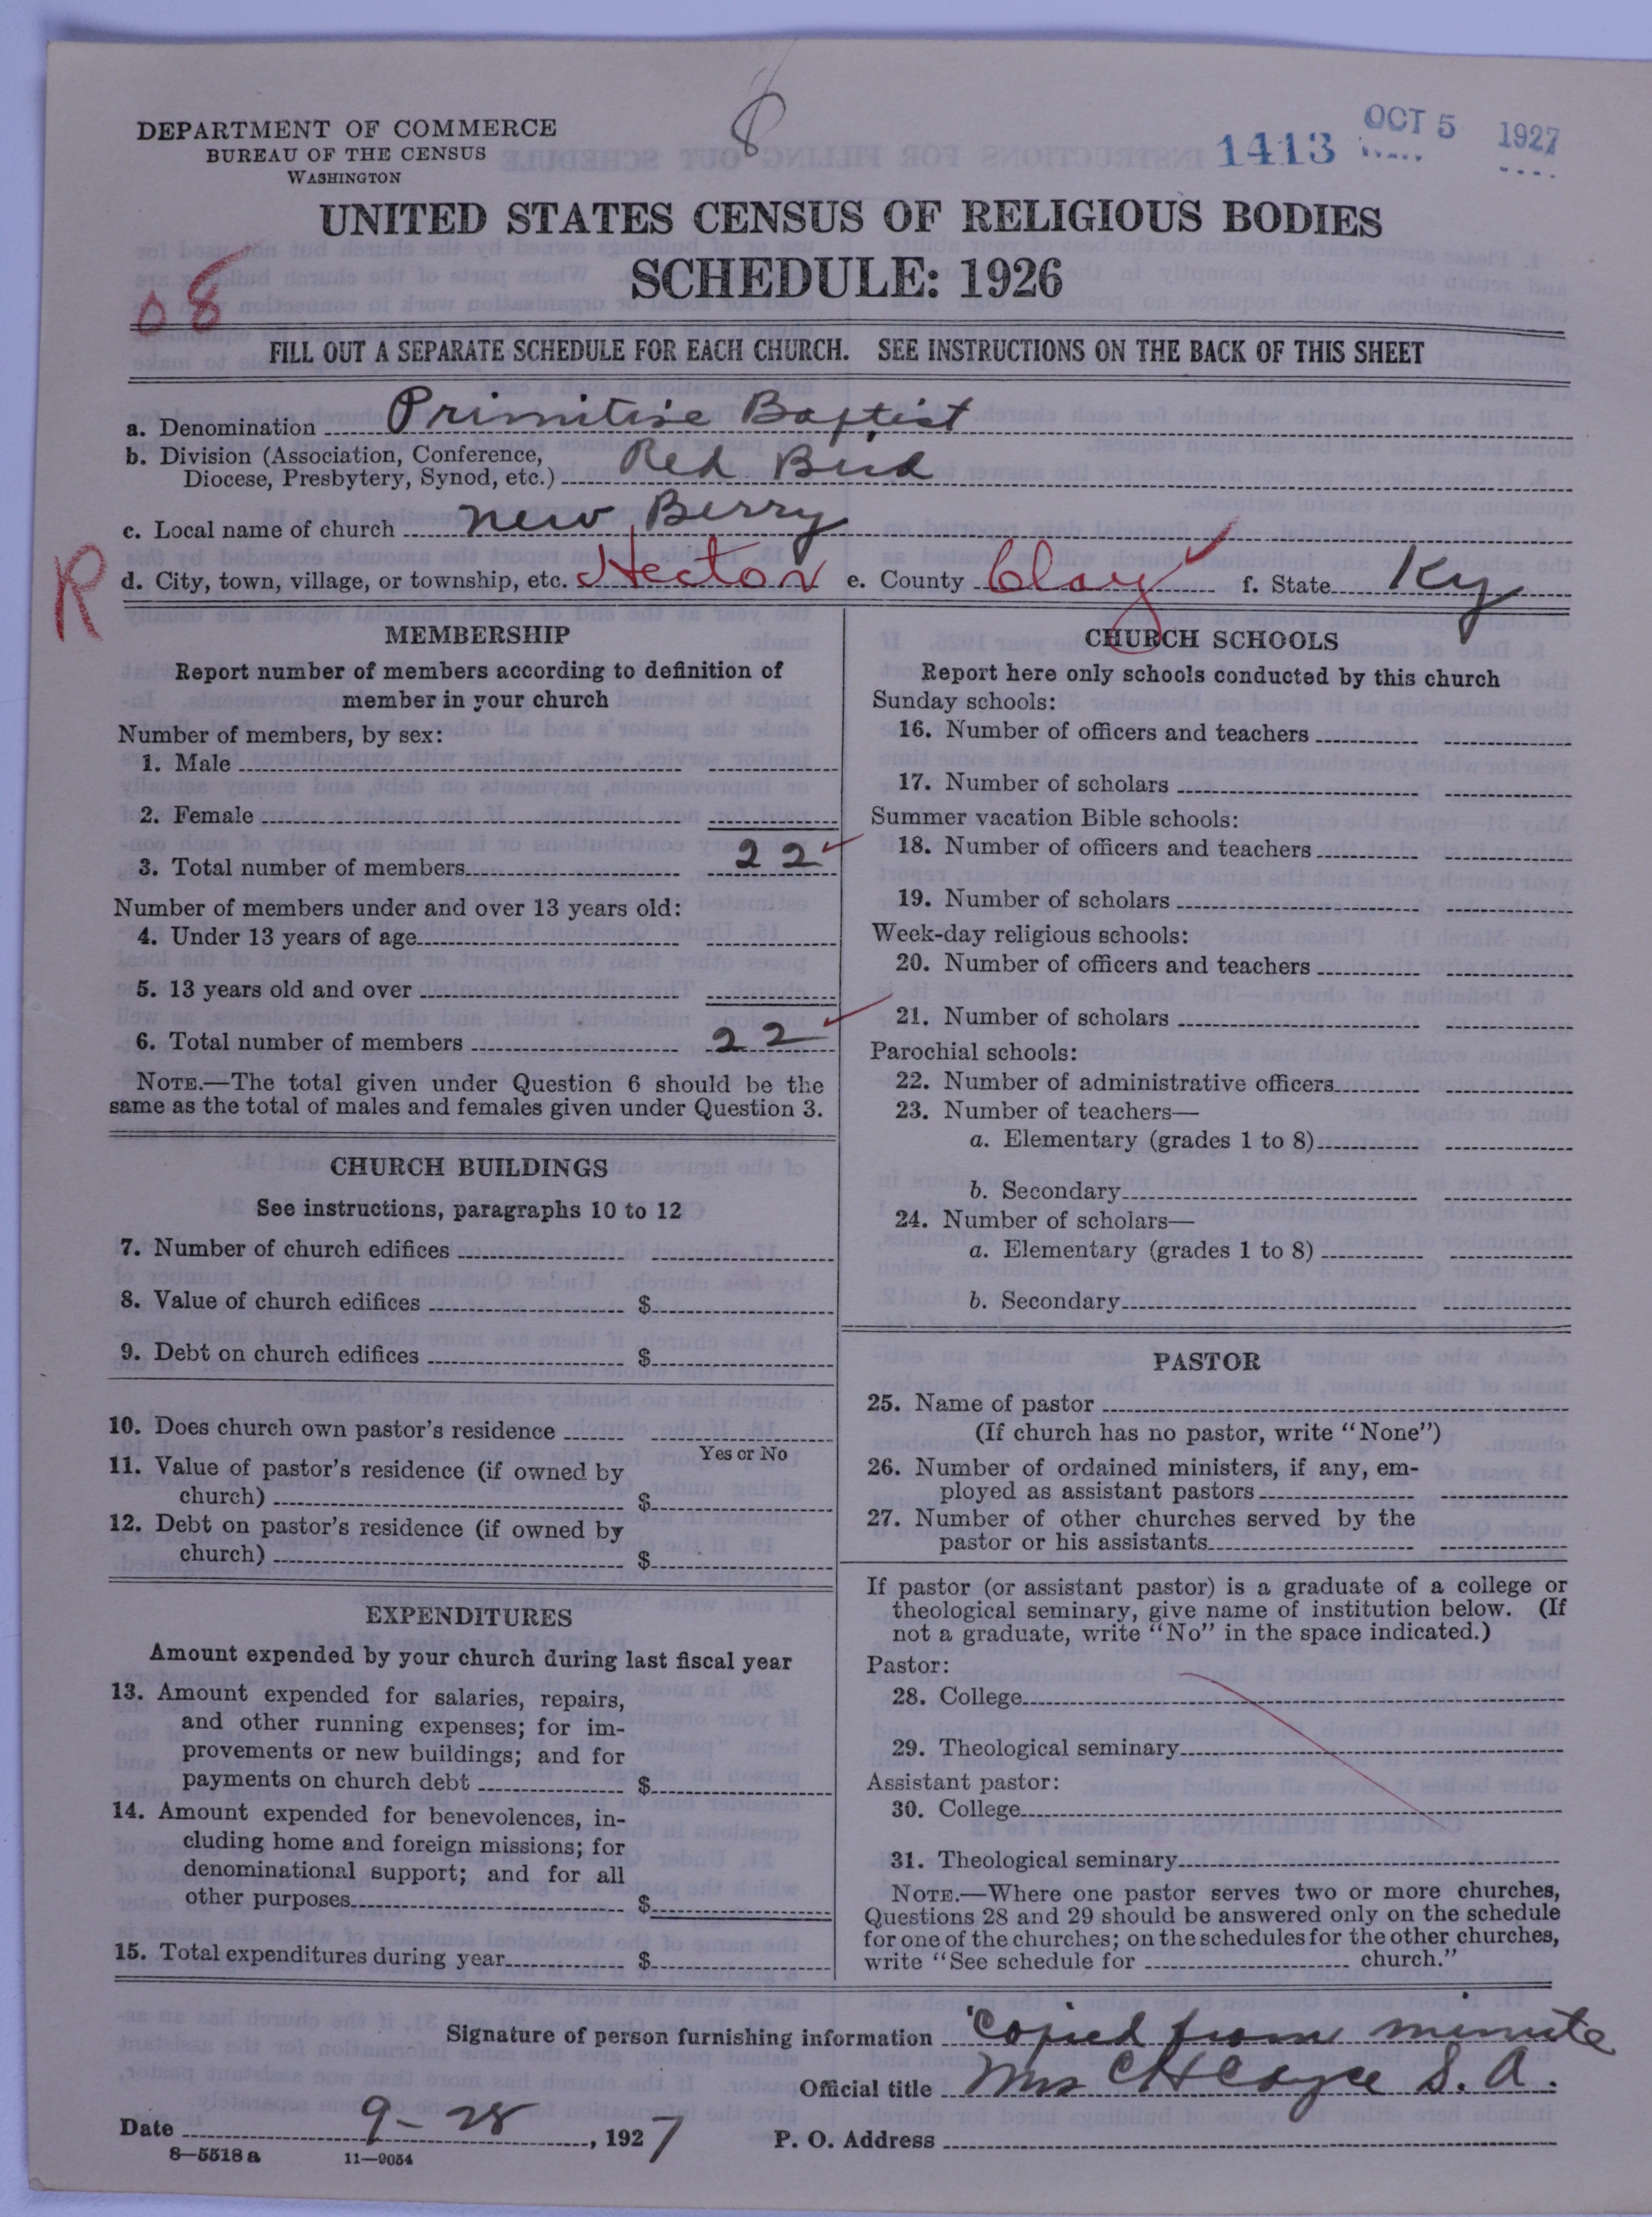 8
DEPARTMENT OF COMMERCE
BUREAU OF THE CENSUS
WASHINGTON
1413 OCT 5 1927
UNITED STATES CENSUS OF RELIGIOUS BODIES
SCHEDULE: 1926
08
FILL OUT A SEPARATE SCHEDULE FOR EACH CHURCH. SEE INSTRUCTIONS ON THE BACK OF THIS SHEET
a. Denomination Primitive Baptist
b. Division (Association, Conference,
Diocese, Presbytery, Synod, etc.) Red Bird
c. Local name of church New Berry
R
d. City, town, village, or township, etc. Hector e. County Clay f. State Ky
MEMBERSHIP
Report number of members according to definition of
member in your church
Number of members, by sex:
1. Male
2. Female
3. Total number of members 22
Number of members under and over 13 years old:
4. Under 13 years of age
5. 13 years old and over
6. Total number of members 22
NOTE.—The total given under Question 6 should be the
same as the total of males and females given under Question 3.
CHURCH BUILDINGS
See instructions, paragraphs 10 to 12
7. Number of church edifices
8. Value of church edifices $
9. Debt on church edifices $
10. Does church own pastor's residence
Yes or No
11. Value of pastor's residence (if owned by
church) $
12. Debt on pastor's residence (if owned by
church) $
EXPENDITURES
Amount expended by your church during last fiscal year
13. Amount expended for salaries, repairs,
and other running expenses; for im-
provements or new buildings; and for
payments on church debt $
14. Amount expended for benevolences, in-
cluding home and foreign missions; for
denominational support; and for all
other purposes $
15. Total expenditures during year $
CHURCH SCHOOLS
Report here only schools conducted by this church
Sunday schools:
16. Number of officers and teachers
17. Number of scholars
Summer vacation Bible schools:
18. Number of officers and teachers
19. Number of scholars
Week-day religious schools:
20. Number of officers and teachers
21. Number of scholars
Parochial schools:
22. Number of administrative officers
23. Number of teachers—
a. Elementary (grades 1 to 8)
b. Secondary
24. Number of scholars—
a. Elementary (grades 1 to 8)
b. Secondary
PASTOR
25. Name of pastor
(If church has no pastor, write "None")
26. Number of ordained ministers, if any, em-
ployed as assistant pastors
27. Number of other churches served by the
pastor or his assistants
If pastor (or assistant pastor) is a graduate of a college or
theological seminary, give name of institution below. (If
not a graduate, write "No" in the space indicated.)
Pastor:
28. College
29. Theological seminary
Assistant pastor:
30. College
31. Theological seminary
NOTE.—Where one pastor serves two or more churches,
Questions 28 and 29 should be answered only on the schedule
for one of the churches; on the schedules for the other churches,
write "See schedule for church."
Signature of person furnishing information Copied from minute
Official title Mrs CH Cayce S. A.
Date 9-28, 1927 P. O. Address
8—5518 a 11—9054